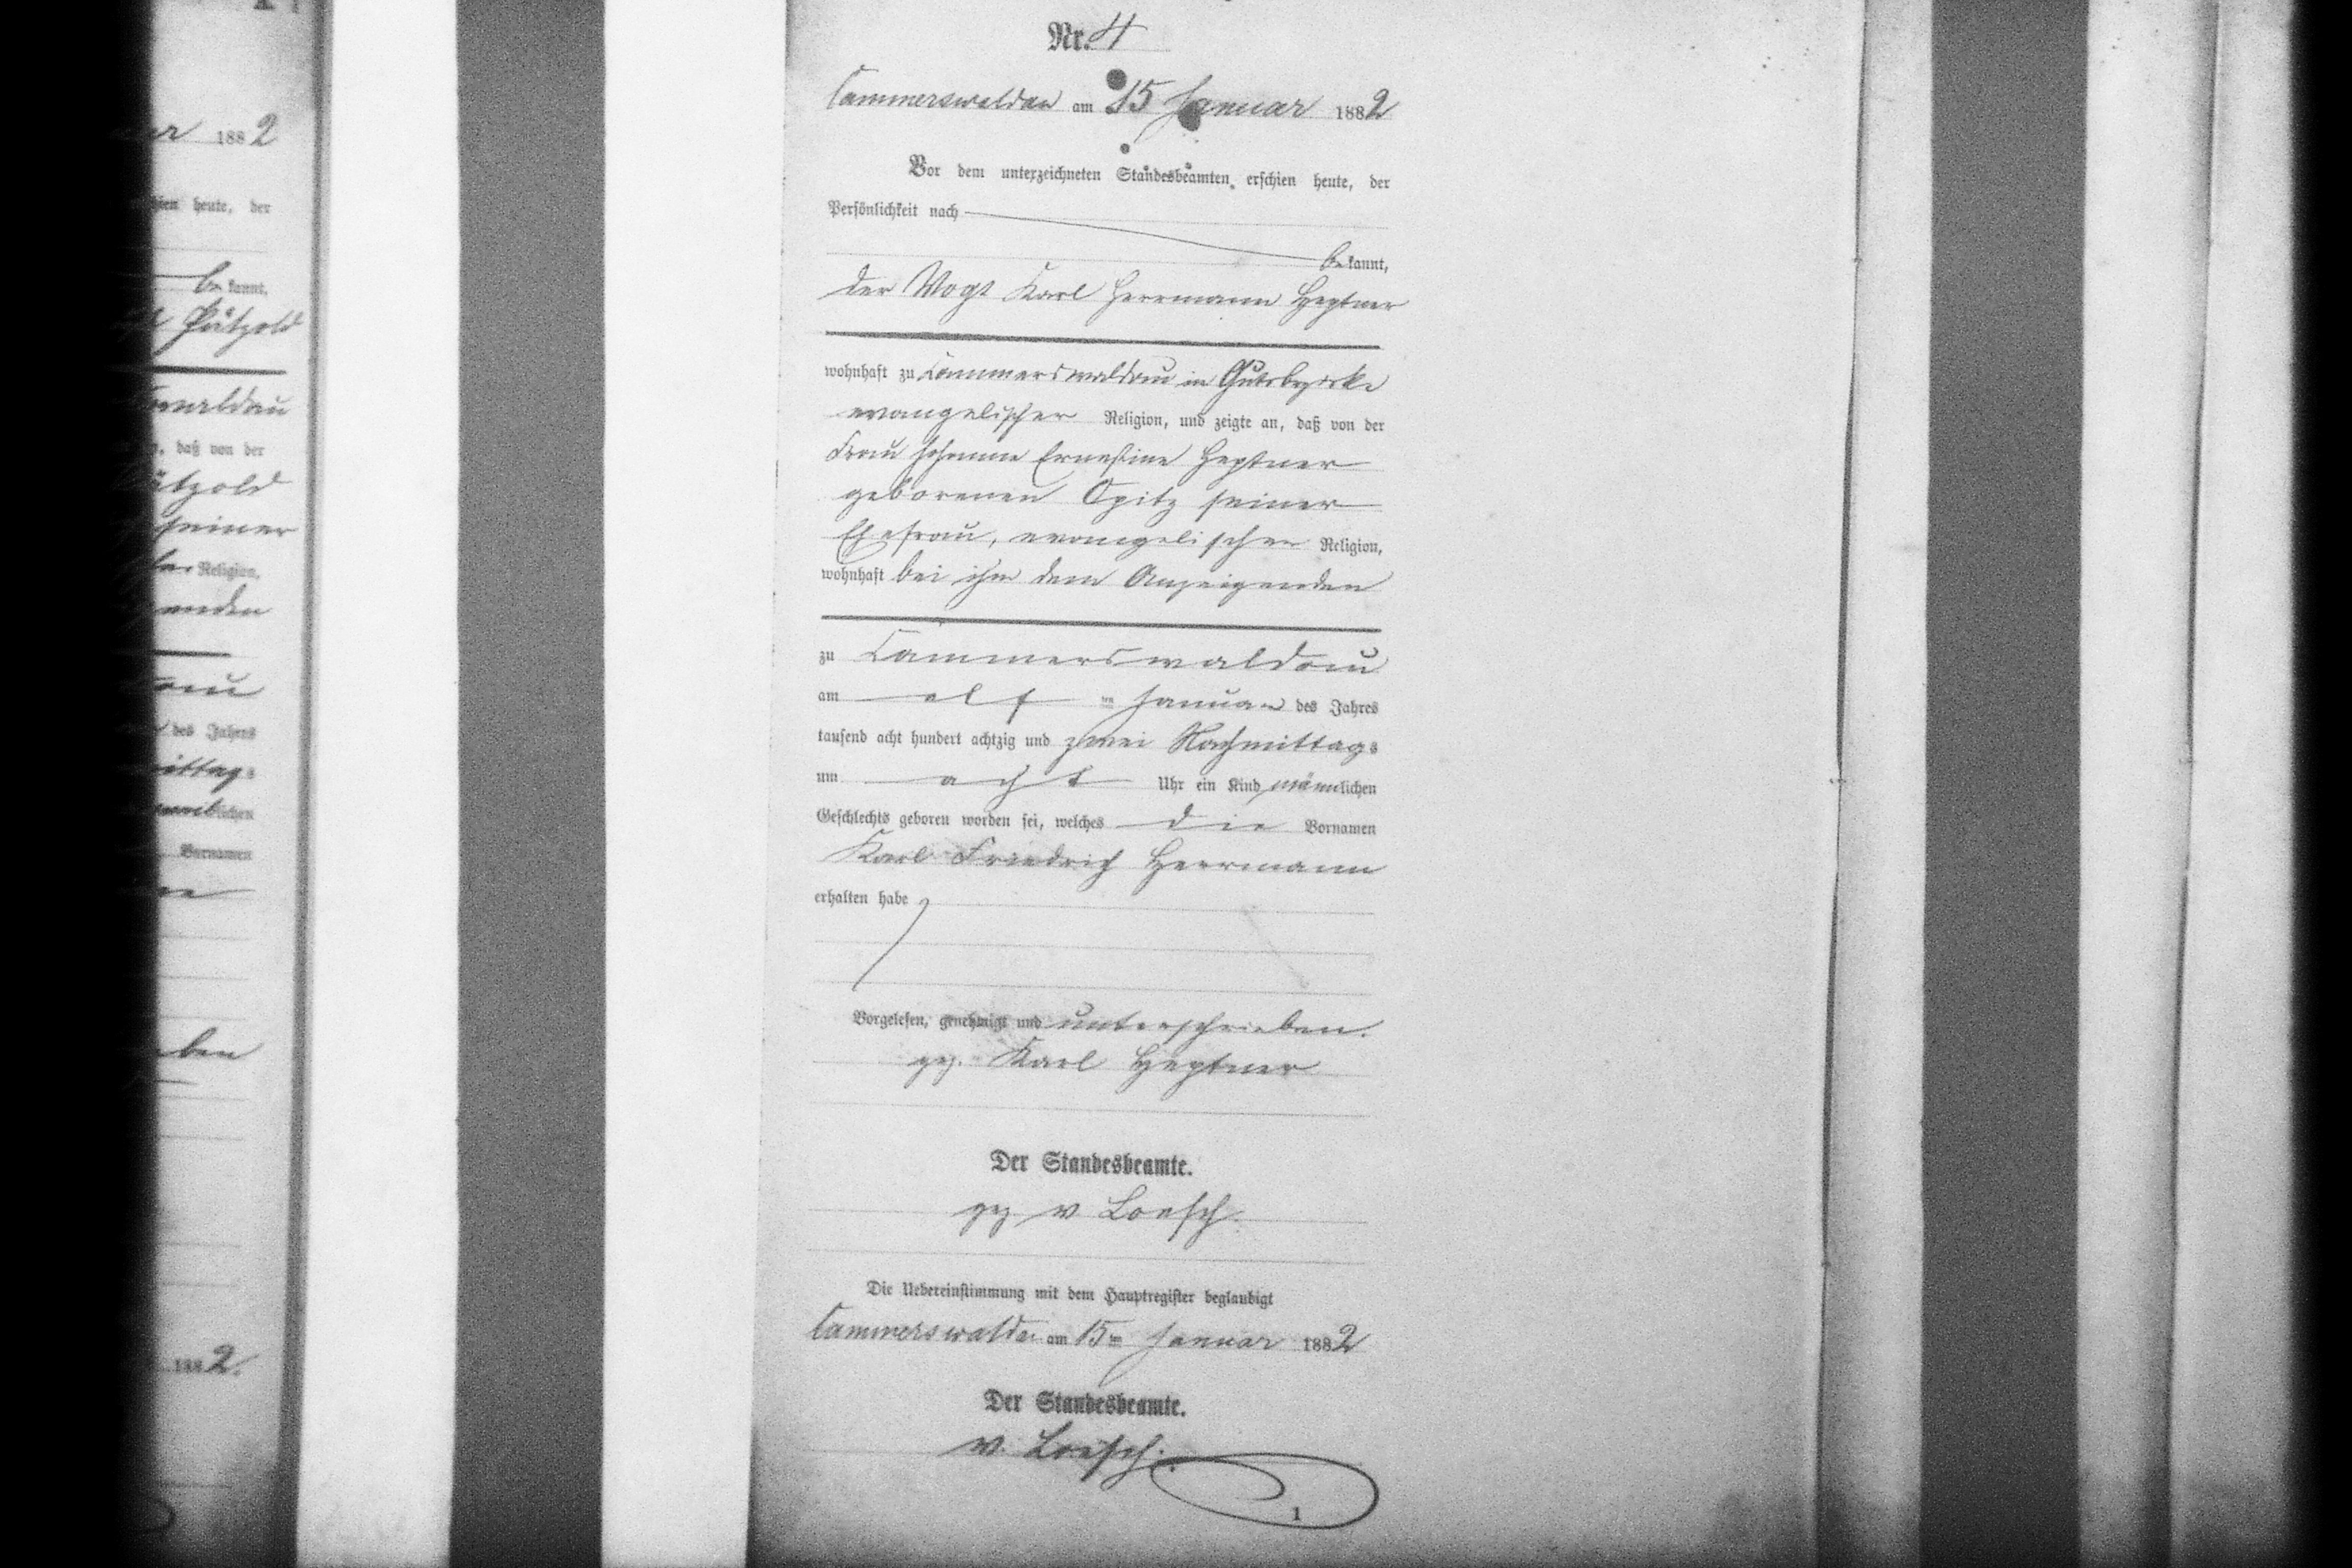 Nr. 4
Cammerswaldau am 15 Januar 1882
Vor dem unterzeichneten Standesbeamten erschien heute, der
Persönlichkeit nach
be kannt,
der Vogt Karl Herrmann Heptner
wohnhaft zu Cammerswaldau in Gutsbezirke
evangelischer Religion, und zeigte an, daß von der
Frau Johanne Ernestine Heptner
geborenen Opitz seiner
Ehefrau, evangelischer Religion,
wohnhaft bei ihm dem Anzeigenden
zu Cammerswaldau
am elf ten Januar des Jahres
tausend acht hundert achtzig und zwei Nachmittags
um acht Uhr ein Kind männlichen
Geschlechts geboren worden sei, welches die Vornamen
Karl Friedrich Herrmann
erhalten habe
Vorgelesen, genehmigt und unterschrieben.
gez. Karl Heptner
Der Standesbeamte.
gez v Loesch.
Die Uebereinstimmung mit dem Hauptregister beglaubigt
Cammerswaldau am 15ten Januar 1882
Der Standesbeamte.
v. Loesch.
1
188 2
heute, der
be kannt,
Pätzold
daß von der
seiner
Religion,
des Jahres
lichen
Vornamen
188 2.